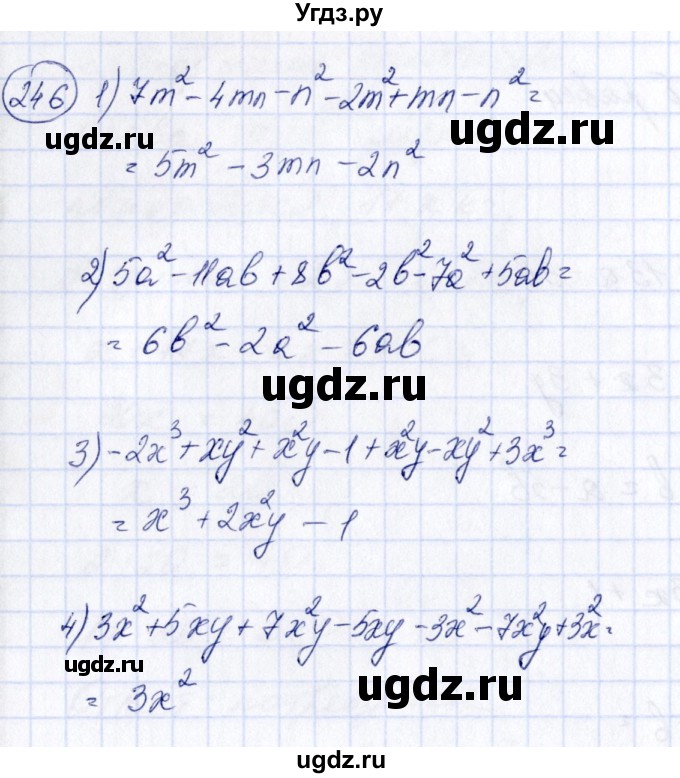 Угдз.ру
246 1) 7m² - 4mn - n² - 2m² + mn - n² =
= 5m² - 3mn - 2n²
ugdz.ru ugdz.ru
2) 5a² - 11ab + 8b² - 2b² - 7a² + 5ab =
= 6b² - 2a² - 6ab
ugdz.ru
3) -2x³ + xy² + x²y - 1 + x²y - xy² + 3x³ =
= x³ + 2x²y - 1
4) 3x² + 5xy + 7x²y - 5xy - 3x² - 7x²y + 3x² =
= 3x²
ugdz.ru ugdz.ru
ugdz.ru